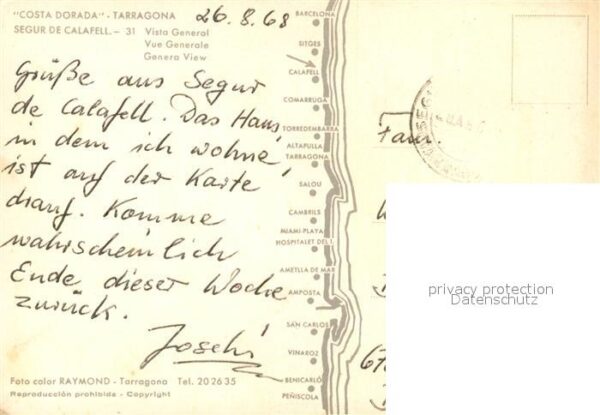 "COSTA DORADA" - TARRAGONA
SEGUR DE CALAFELL. - 31 Vista General
Vue Generale
Genera View
26.8.68
Grüße aus Segur
de Calafell. Das Haus,
in dem ich wohne,
ist auf der Karte
drauf. Komme
wahrscheinlich
Ende dieser Woche
zurück.
Joschi
Foto color RAYMOND - Tarragona Tel. 202635
Reproducción prohibida - Copyright
BARCELONA
SITGES
CALAFELL
COMARRUGA
TORREDEMBARRA
ALTAFULLA
TARRAGONA
SALOU
CAMBRILS
MIAMI-PLAYA
HOSPITALET DEL I.
AMETLLA DE MAR
AMPOSTA
SAN CARLOS
VINAROZ
BENICARLÓ
PEÑISCOLA
Fam.
67
privacy protection
Datenschutz